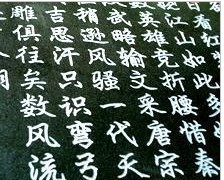 江山如此
英雄竞折腰惜秦
武略输文采唐宗
稍逊风骚一代天
吉思汗只识弯弓
雕俱往矣数风流